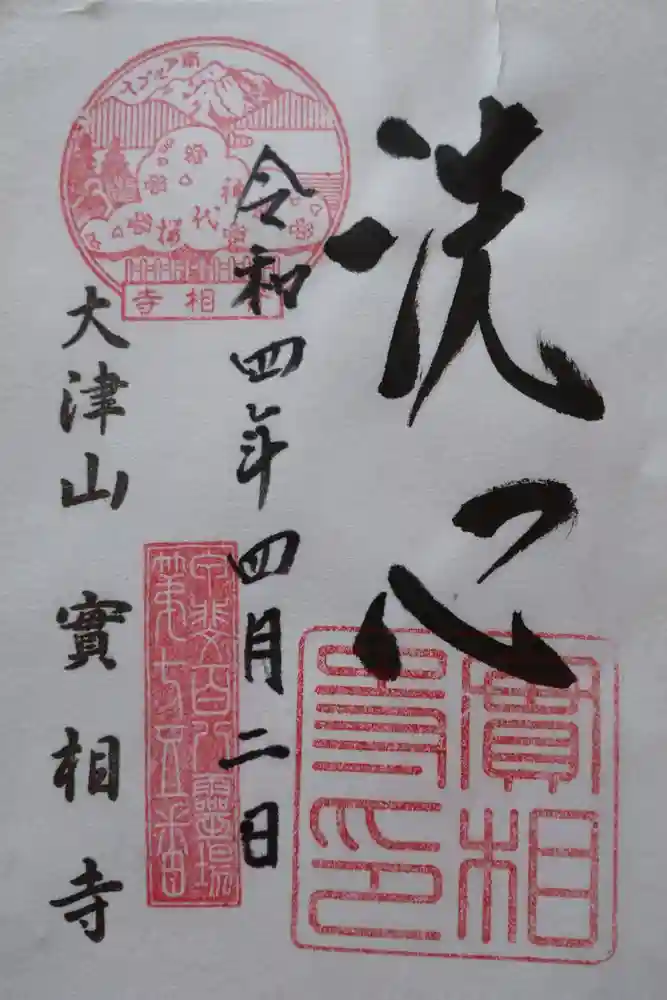 洗心
令和四年四月二日
大津山 實相寺
南アルプス
神代桜
實相寺
甲斐百八靈場
實相
寺印